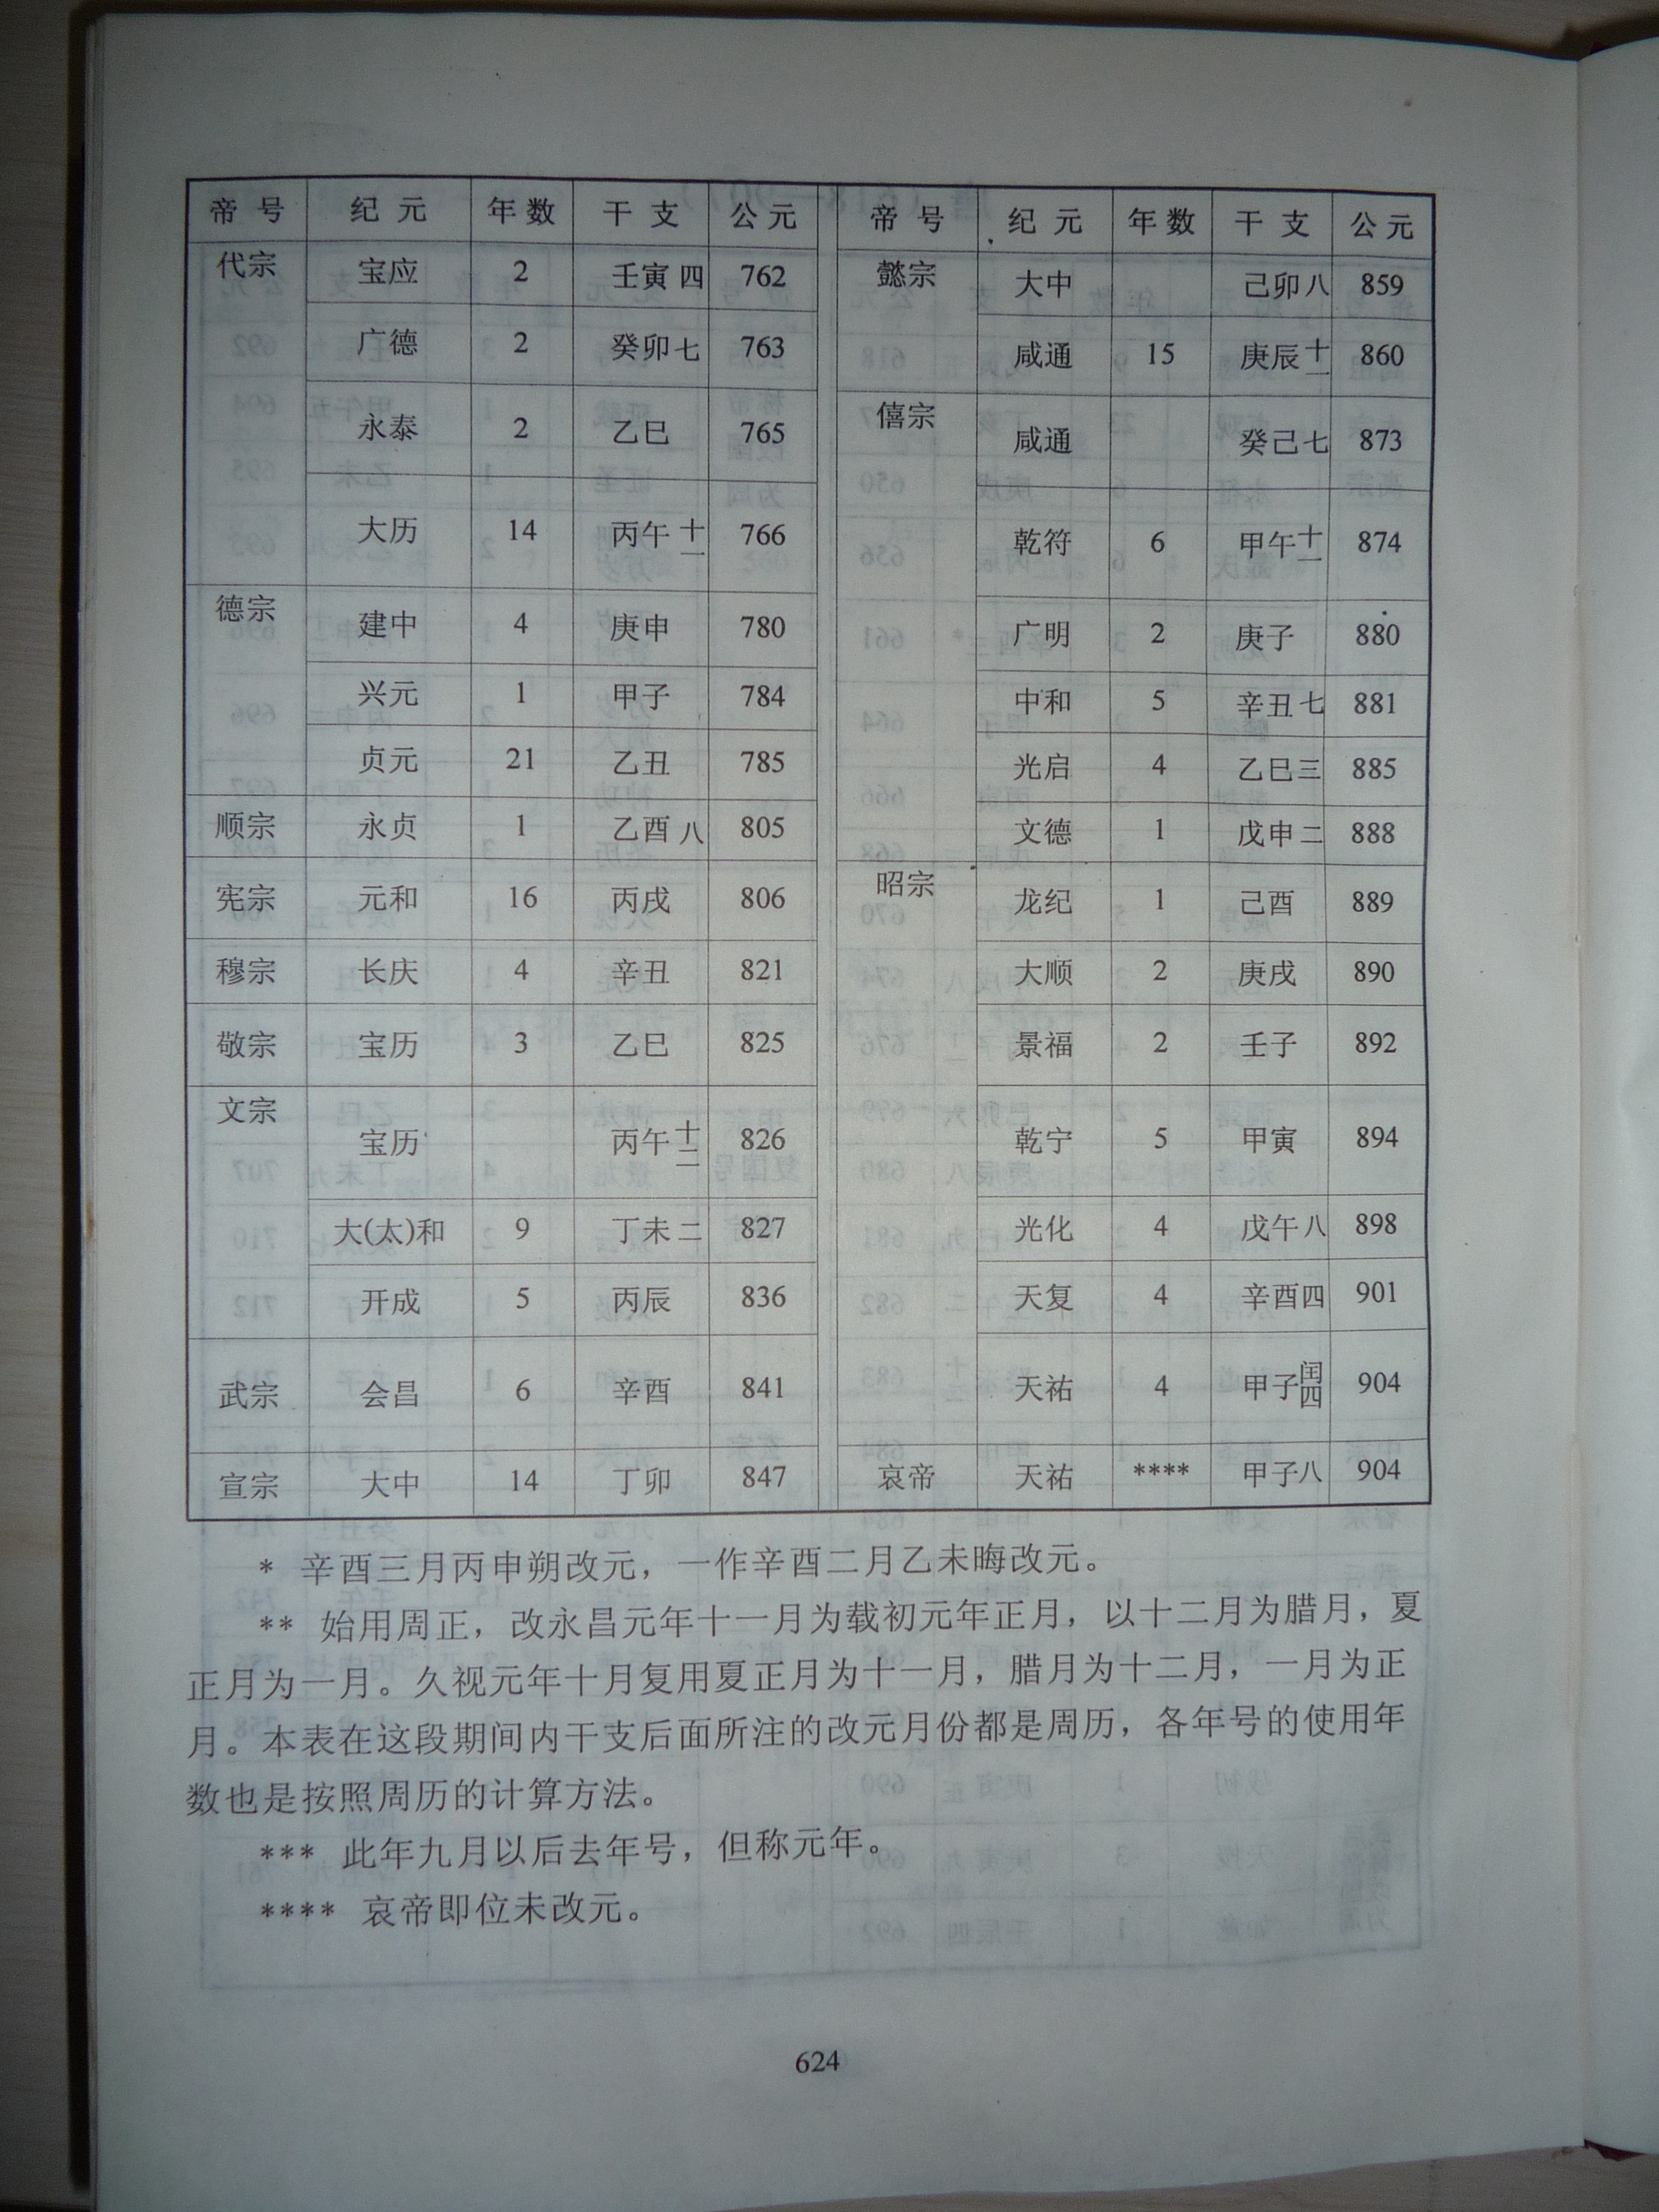 帝号 纪元 年数 干支 公元 帝号 纪元 年数 干支 公元
代宗 宝应 2 壬寅四 762 懿宗 大中 己卯八 859
广德 2 癸卯七 763 咸通 15 庚辰十一 860
永泰 2 乙巳 765 僖宗 咸通 癸己七 873
大历 14 丙午十一 766 乾符 6 甲午十一 874
德宗 建中 4 庚申 780 广明 2 庚子 880
兴元 1 甲子 784 中和 5 辛丑七 881
贞元 21 乙丑 785 光启 4 乙巳三 885
顺宗 永贞 1 乙酉八 805 文德 1 戊申二 888
宪宗 元和 16 丙戌 806 昭宗 龙纪 1 己酉 889
穆宗 长庆 4 辛丑 821 大顺 2 庚戌 890
敬宗 宝历 3 乙巳 825 景福 2 壬子 892
文宗 宝历 丙午十二 826 乾宁 5 甲寅 894
大(太)和 9 丁未二 827 光化 4 戊午八 898
开成 5 丙辰 836 天复 4 辛酉四 901
武宗 会昌 6 辛酉 841 天祐 4 甲子闰四 904
宣宗 大中 14 丁卯 847 哀帝 天祐 **** 甲子八 904
* 辛酉三月丙申朔改元，一作辛酉二月乙未晦改元。
** 始用周正，改永昌元年十一月为载初元年正月，以十二月为腊月，夏
正月为一月。久视元年十月复用夏正月为十一月，腊月为十二月，一月为正
月。本表在这段期间内干支后面所注的改元月份都是周历，各年号的使用年
数也是按照周历的计算方法。
*** 此年九月以后去年号，但称元年。
**** 哀帝即位未改元。
624